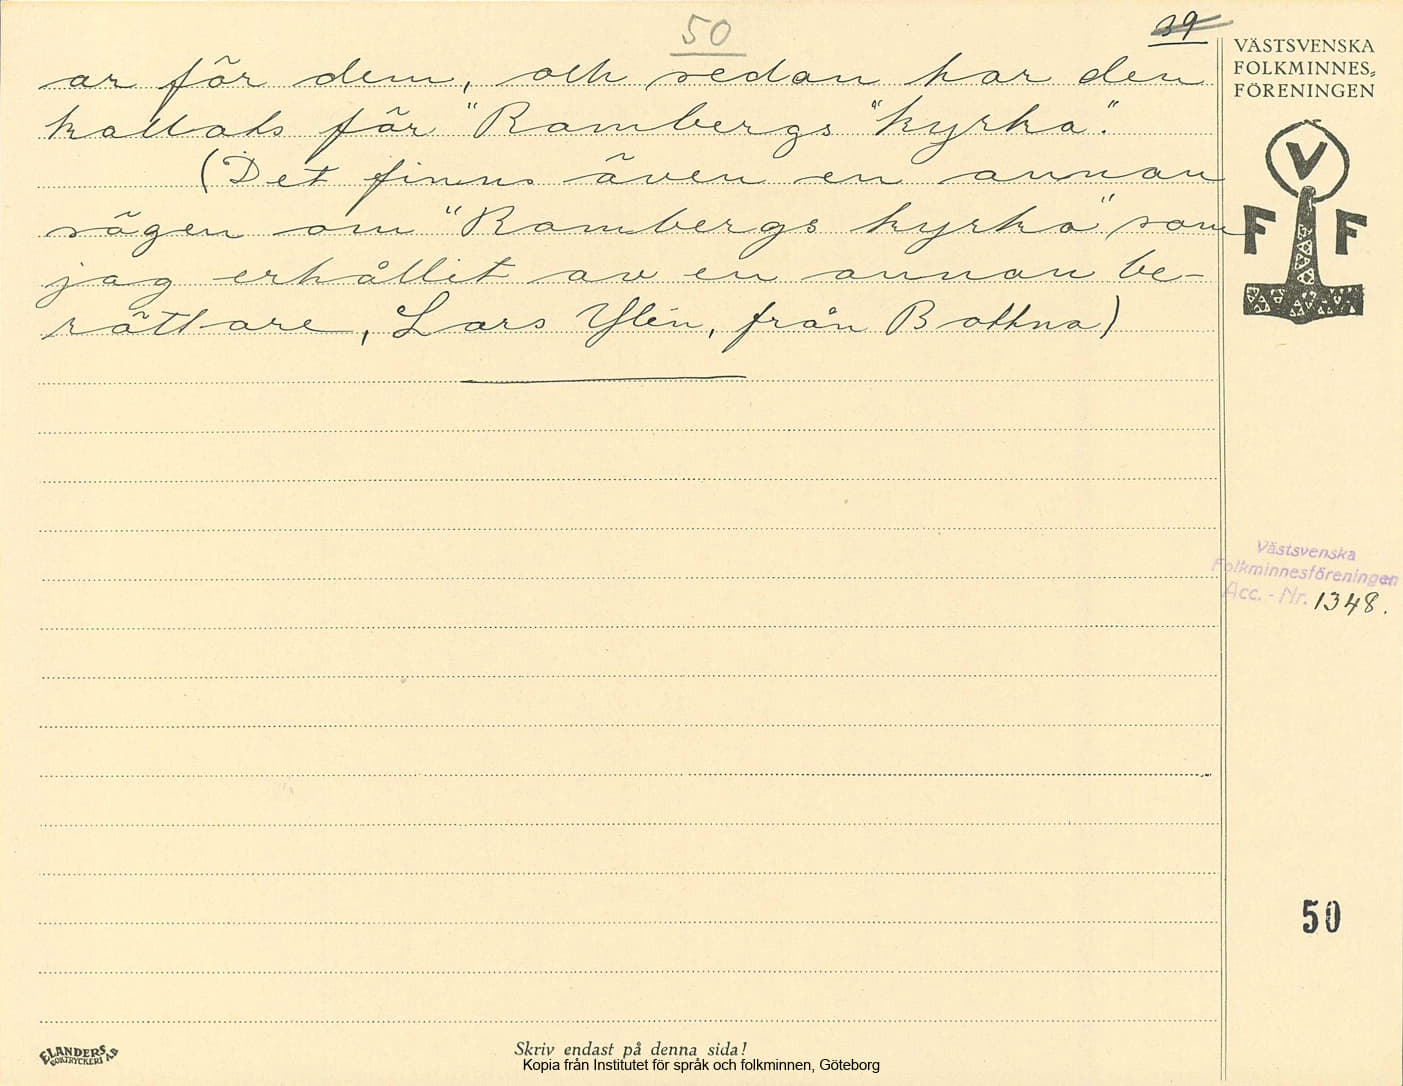 50
39
ar för dem, och sedan har den
kallats för "Rambergs "kyrka".
(Det finns även en annan
sägen om "Rambergs kyrka" som
jag erhållit av en annan be-
rättare, Lars Ylén, från Bottna)
VÄSTSVENSKA
FOLKMINNES=
FÖRENINGEN
V
F F
Västsvenska
Folkminnesföreningen
Acc. - Nr. 1348.
50
ELANDERS
BOKTRYCKERI AB
Skriv endast på denna sida!
Kopia från Institutet för språk och folkminnen, Göteborg